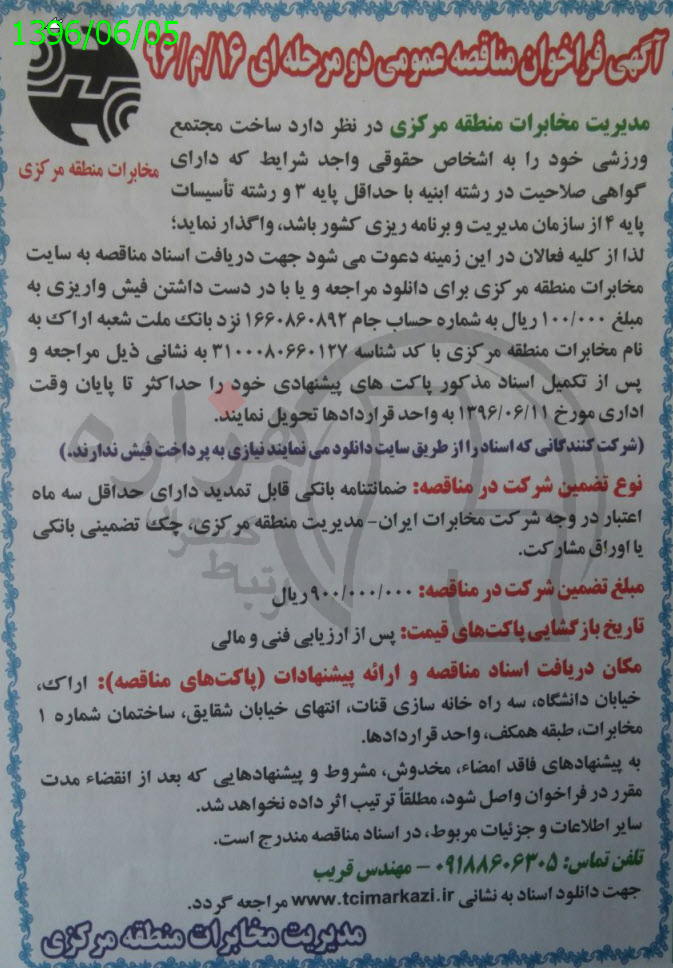 1396/06/05
آگهی فراخوان مناقصه عمومی دو مرحله ای ۱۶/م/۹۶
مخابرات منطقه مرکزی
مدیریت مخابرات منطقه مرکزی در نظر دارد ساخت مجتمع
ورزشی خود را به اشخاص حقوقی واجد شرایط که دارای
گواهی صلاحیت در رشته ابنیه با حداقل پایه ۳ و رشته تأسیسات
پایه ۴ از سازمان مدیریت و برنامه ریزی کشور باشد، واگذار نماید؛
لذا از کلیه فعالان در این زمینه دعوت می شود جهت دریافت اسناد مناقصه به سایت
مخابرات منطقه مرکزی برای دانلود مراجعه و یا با در دست داشتن فیش واریزی به
مبلغ ۱۰۰/۰۰۰ ریال به شماره حساب جام ۱۶۶۰۸۶۰۸۹۲ نزد بانک ملت شعبه اراک به
نام مخابرات منطقه مرکزی با کد شناسه ۳۱۰۰۰۸۰۶۶۰۱۲۷ به نشانی ذیل مراجعه و
پس از تکمیل اسناد مذکور پاکت های پیشنهادی خود را حداکثر تا پایان وقت
اداری مورخ ۱۳۹۶/۰۶/۱۱ به واحد قراردادها تحویل نمایند.
(شرکت کنندگانی که اسناد را از طریق سایت دانلود می نمایند نیازی به پرداخت فیش ندارند.)
نوع تضمین شرکت در مناقصه: ضمانتنامه بانکی قابل تمدید دارای حداقل سه ماه
اعتبار در وجه شرکت مخابرات ایران- مدیریت منطقه مرکزی، چک تضمینی بانکی
یا اوراق مشارکت.
مبلغ تضمین شرکت در مناقصه: ۹۰۰/۰۰۰/۰۰۰ ریال
تاریخ بازگشایی پاکت‌های قیمت: پس از ارزیابی فنی و مالی
مکان دریافت اسناد مناقصه و ارائه پیشنهادات (پاکت‌های مناقصه): اراک،
خیابان دانشگاه، سه راه خانه سازی قنات، انتهای خیابان شقایق، ساختمان شماره ۱
مخابرات، طبقه همکف، واحد قراردادها.
به پیشنهادهای فاقد امضاء، مخدوش، مشروط و پیشنهادهایی که بعد از انقضاء مدت
مقرر در فراخوان واصل شود، مطلقاً ترتیب اثر داده نخواهد شد.
سایر اطلاعات و جزئیات مربوط، در اسناد مناقصه مندرج است.
تلفن تماس: ۰۹۱۸۸۶۰۶۳۰۵ – مهندس قریب
جهت دانلود اسناد به نشانی www.tcimarkazi.ir مراجعه گردد.
مدیریت مخابرات منطقه مرکزی
هزاره